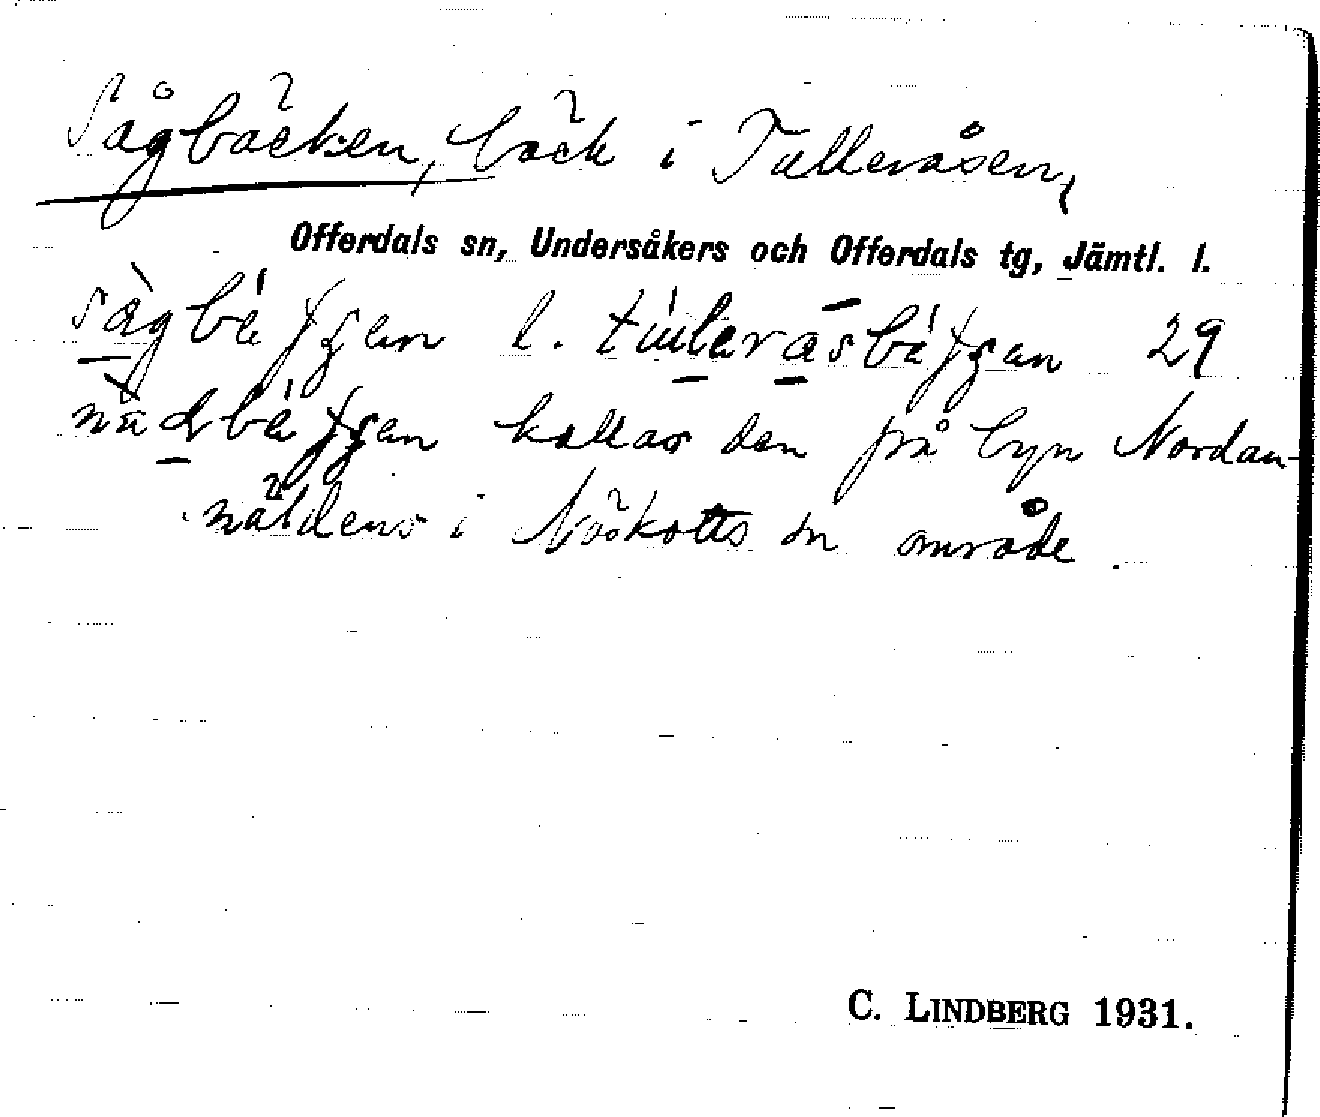 Sågbäcken, bäck i Tulleråsen,
Offerdals sn, Undersåkers och Offerdals tg, Jämtl. l.
l. 29
kallas den på byn Nordan-
näldens i Näskotts sn område.
C. LINDBERG 1931.